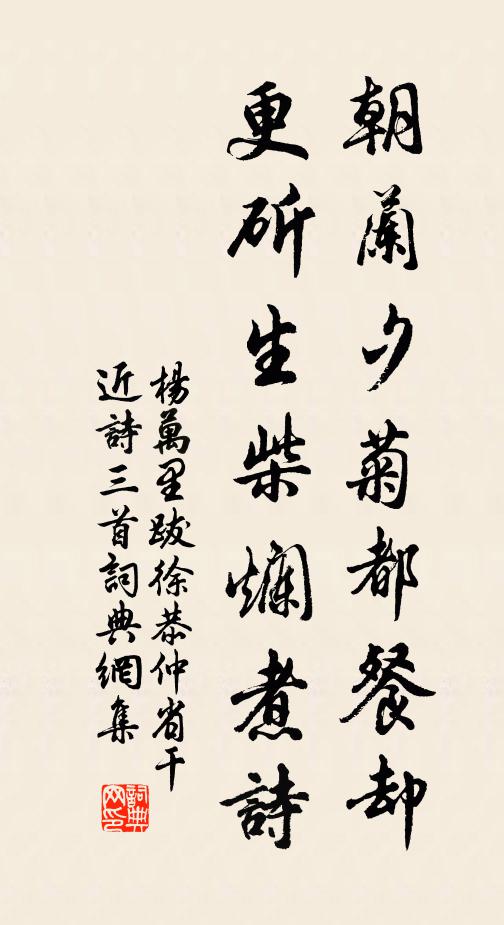 朝蘭夕菊都餐却
更斫生柴爛煮詩
楊萬里跋徐恭仲省干
近詩三首詞典網集
詞典
网印